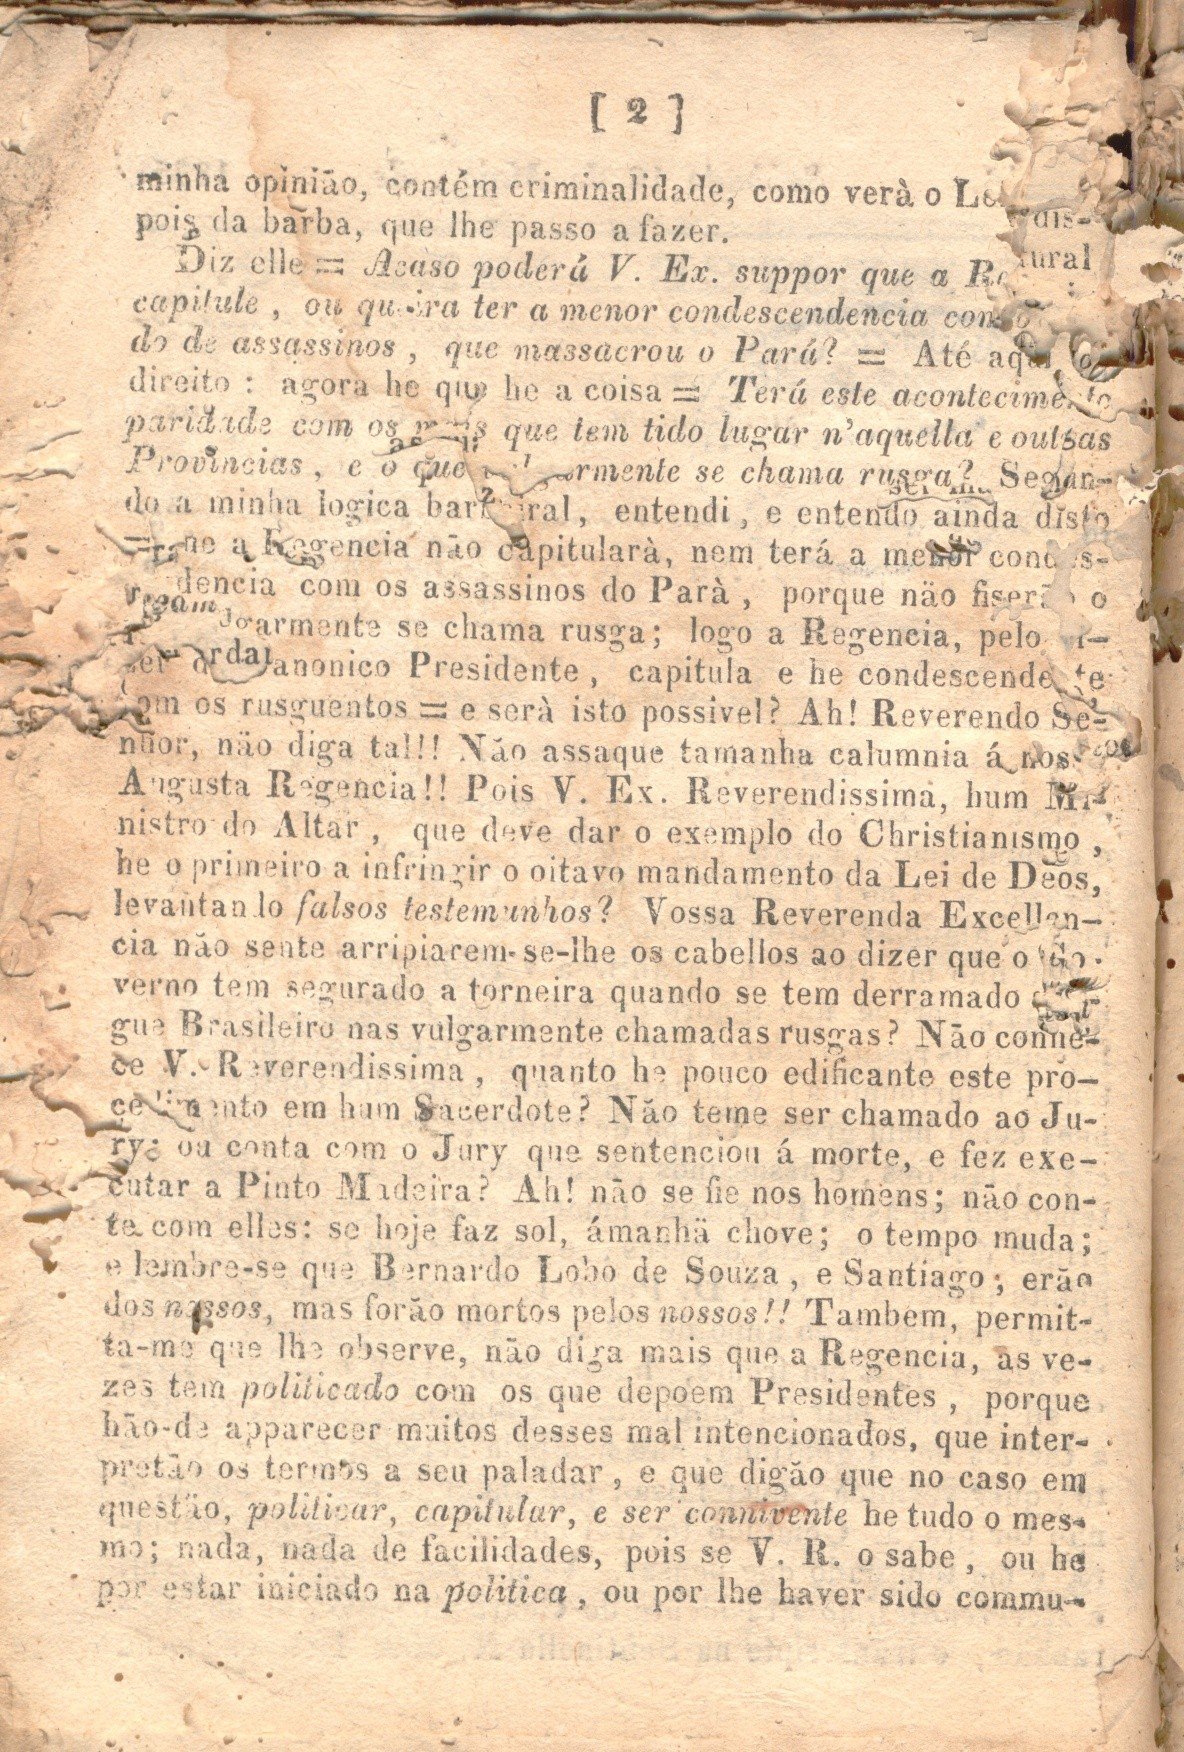 [ 2 ]
minha opinião, contém criminalidade, como verà o
pois da barba, que lhe passo a fazer.
Diz elle = Acaso poderá V. Ex. suppor que a
capitule, ou queira ter a menor condescendencia
do de assassinos, que massacrou o Pará? = Até aqui
direito: agora he que he a coisa = Terá este acontecimento
paridade com os mais que tem tido lugar n'aquella e outras
Provincias, e o que se chama rusga? Segun-
do a minha logica entendi, e entendo ainda disto
= a Regencia não capitularà, nem terá a menor condes-
dencia com os assassinos do Parà, porque não fiserão o
se chama rusga; logo a Regencia, pelo
Presidente, capitula e he condescendente
com os rusguentos = e serà isto possivel? Ah! Reverendo Se-
nhor, não diga tal!!! Não assaque tamanha calumnia á
Augusta Regencia!! Pois V. Ex. Reverendissima, hum Mi-
nistro do Altar, que deve dar o exemplo do Christianismo,
he o primeiro a infringir o oitavo mandamento da Lei de Deos,
levantando falsos testemunhos? Vossa Reverenda Excellen-
cia não sente arripiarem-se-lhe os cabellos ao dizer que o Go-
verno tem segurado a torneira quando se tem derramado
gue Brasileiro nas vulgarmente chamadas rusgas? Não conhe-
ce V. Reverendissima, quanto he pouco edificante este pro-
cedimento em hum Sacerdote? Não teme ser chamado ao Ju-
ry; ou conta com o Jury que sentenciou á morte, e fez exe-
cutar a Pinto Madeira? Ah! não se fie nos homens; não con-
te com elles: se hoje faz sol, ámanhã chove; o tempo muda;
e lembre-se que Bernardo Lobo de Souza, e Santiago; erão
dos nossos, mas forão mortos pelos nossos!! Tambem, permit-
ta-me que lhe observe, não diga mais que a Regencia, as ve-
zes tem politicado com os que depoem Presidentes, porque
hão-de apparecer muitos desses mal intencionados, que inter-
pretão os termos a seu paladar, e que digão que no caso em
questão, politicar, capitular, e ser connivente he tudo o mes-
mo; nada, nada de facilidades, pois se V. R. o sabe, ou he
por estar iniciado na politica, ou por lhe haver sido commu-